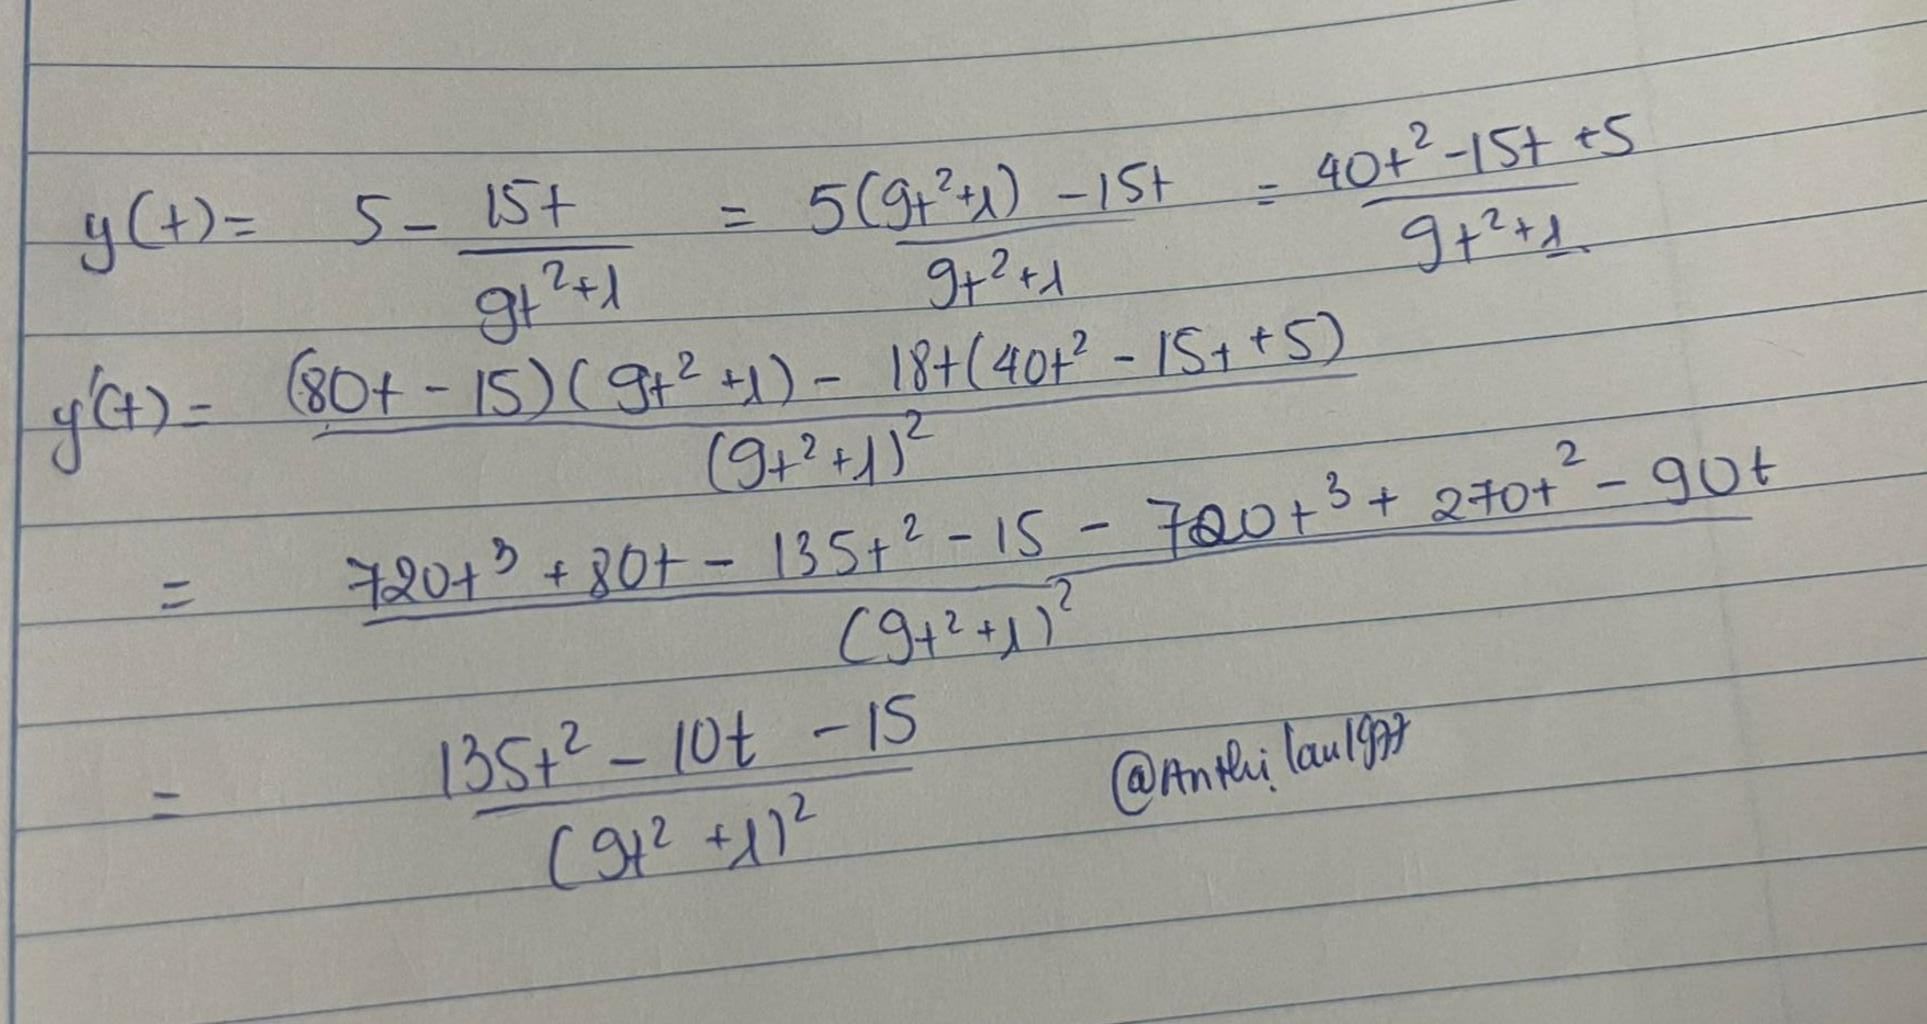 y(t) = 5 - 15t/(9t²+1) = (5(9t²+1) - 15t)/(9t²+1) = (40t² - 15t + 5)/(9t²+1)
y'(t) = ((80t - 15)(9t² + 1) - 18t(40t² - 15t + 5))/(9t²+1)²
= (720t³ + 80t - 135t² - 15 - 720t³ + 270t² - 90t)/(9t²+1)²
= (135t² - 10t - 15)/(9t² + 1)²
@Anthilau1977